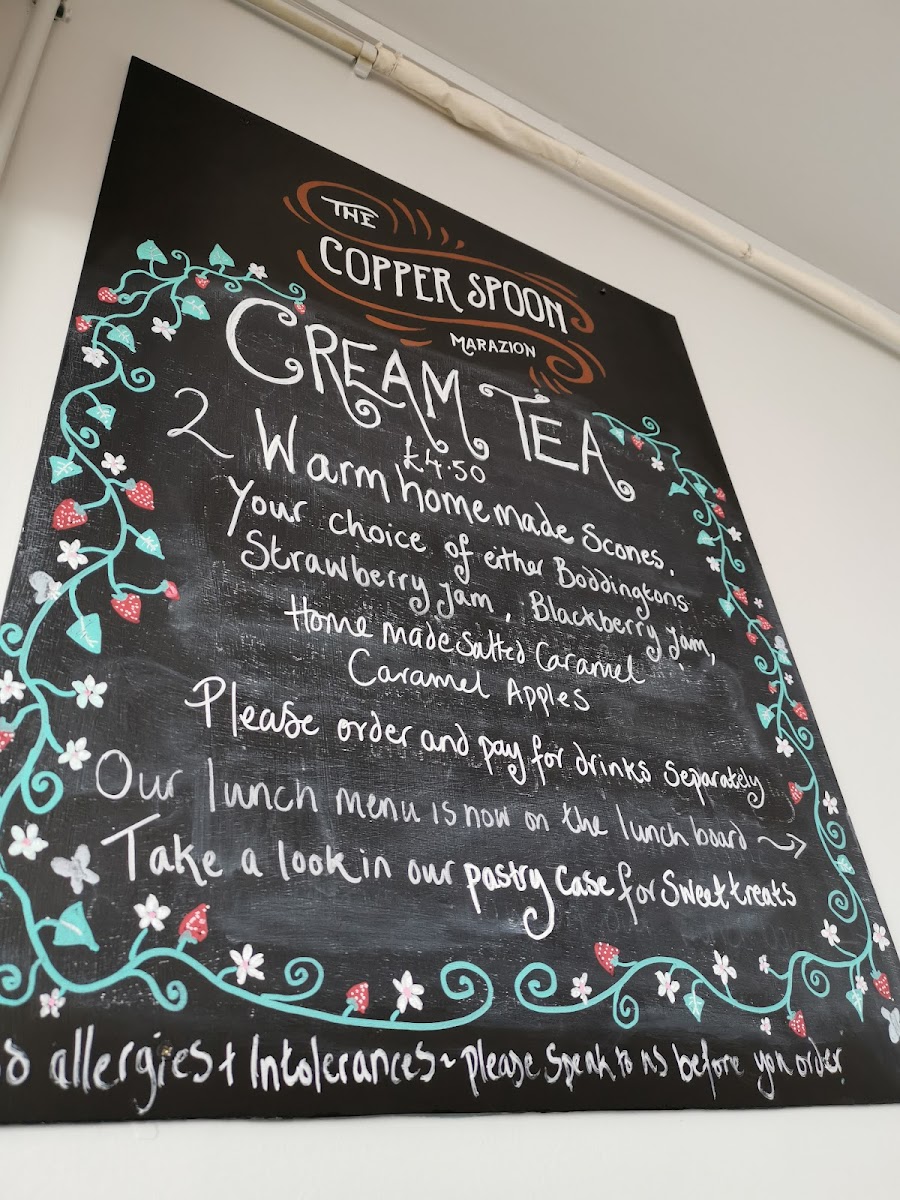 THE
COPPER SPOON
MARAZION
CREAM TEA
£4.50
2 Warm homemade Scones.
Your choice of either Boddingtons
Strawberry Jam, Blackberry Jam,
Home made Salted Caramel
Caramel Apples
Please order and pay for drinks separately
Our lunch menu is now on the lunch board
Take a look in our pastry case for Sweet treats
allergies + Intolerances ~ please speak to us before you order